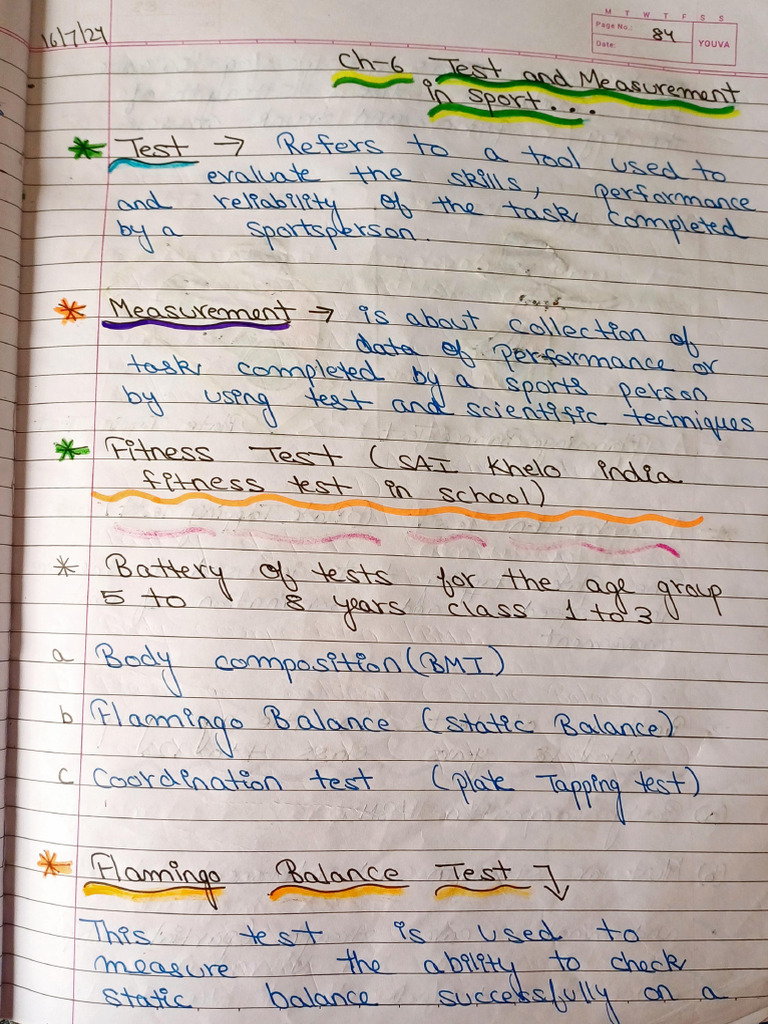 16/7/24
M T W T F S S
Page No.: 84
Date:
YOUVA
Ch-6 Test and Measurement
in sport...
* Test → Refers to a tool used to
evaluate the skills, performance
and reliability of the task completed
by a sportsperson.
* Measurement → is about collection of
data of performance or
task completed by a sports person
by using test and scientific techniques
* Fitness Test (SAI Khelo india
fitness test in school)
* Battery of tests for the age group
5 to 8 years class 1 to 3
a Body composition (BMI)
b Flamingo Balance (static Balance)
c Coordination test (plate Tapping test)
* Flamingo Balance Test ↴
This test is used to
measure the ability to check
static balance successfully on a